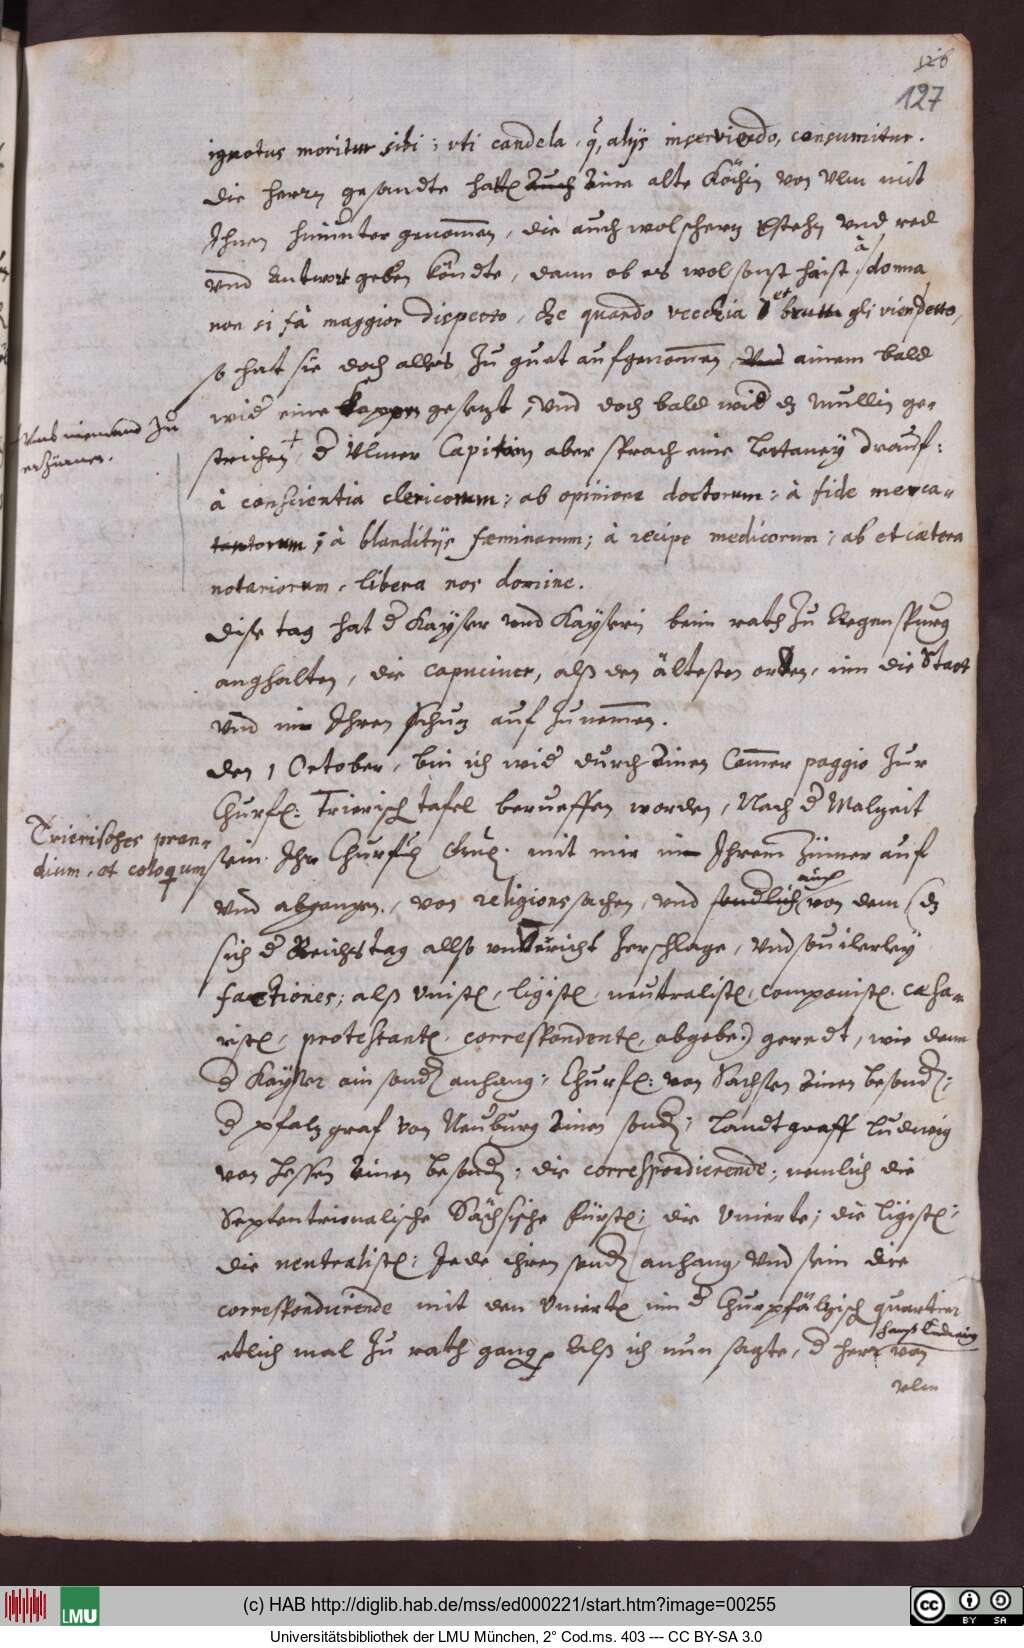 126
127
ignotus moritur sibi; vti candela, q, alijs inserviendo, consumitur.
die herrn gesandte hatt auch eine alte Köchin von Ulm mit
Ihnen hinunter genommen, die auch wol schertz verstehn vnd red
vnd Antwort geben köndte, dann ob es wol sonst haist, à donna
non si fà maggior dispetto, che quando vecchia et brutta gli vien detto,
so hat sie doch alles zu guet aufgenommen, vnd ainem bald
wid eine Kappen gesetzt, vnd doch bald wid dz mullin ge-
strichen + d Ulmer Capitain aber sprach eine Letaney drauf:
Umb niemand zu
erzürnen.
à conscientia clericorum; ab opinione doctorum; à fide merca-
tantorum; à blanditijs fœminarum; à recipe medicorum; ab et cætera
notariorum, libera nos domine.
Dise tag hat d Kayser vnd Kayserin beim rath zu Regenspurg
anghalten, die capuciner, alß den ältesten orden, inn die Statt
vnd inn Ihren Schutz auf zunemmen.
den 1 October, bin ich wid durch einen Cammer paggio zur
Churf: Trierisch tafel berueffen worden, Nach d Malzeit
Trierisches pran-
dium, et coloquium
sein Ihr Churf Gn. mit mir inn Ihrem Zimmer auf
vnd abgangen, von religionssachen, vnd sondlich auch von dem (dz
sich d Reichstag allso vnverricht zerschlage, vnd souilerley
factiones; alß vnist, ligist, neutralist, componist. cæsa-
rist, protestant, correspondent, abgebe) geredt, wie dann
d Kayser ein sond anhang; Churf: von Sachsen einen besond;
d pfaltzgraf von Neuburg einen sond; Landtgraff Ludwig
von Hessen einen besond; die correspondierende, nemlich die
Septentrionalische Sächsische fürst; die Vnierte; die ligist;
die neutralist; Jede ihren sond anhang, vnd sein die
correspondierende mit den Vniert inn d Churpfältzisch quartier
etlich mal zu rath gang. Alß ich nun sagte, d herr Hanß Ludwig von
Ulm
(c) HAB http://diglib.hab.de/mss/ed000221/start.htm?image=00255
LMU
cc BY SA
Universitätsbibliothek der LMU München, 2° Cod.ms. 403 --- CC BY-SA 3.0